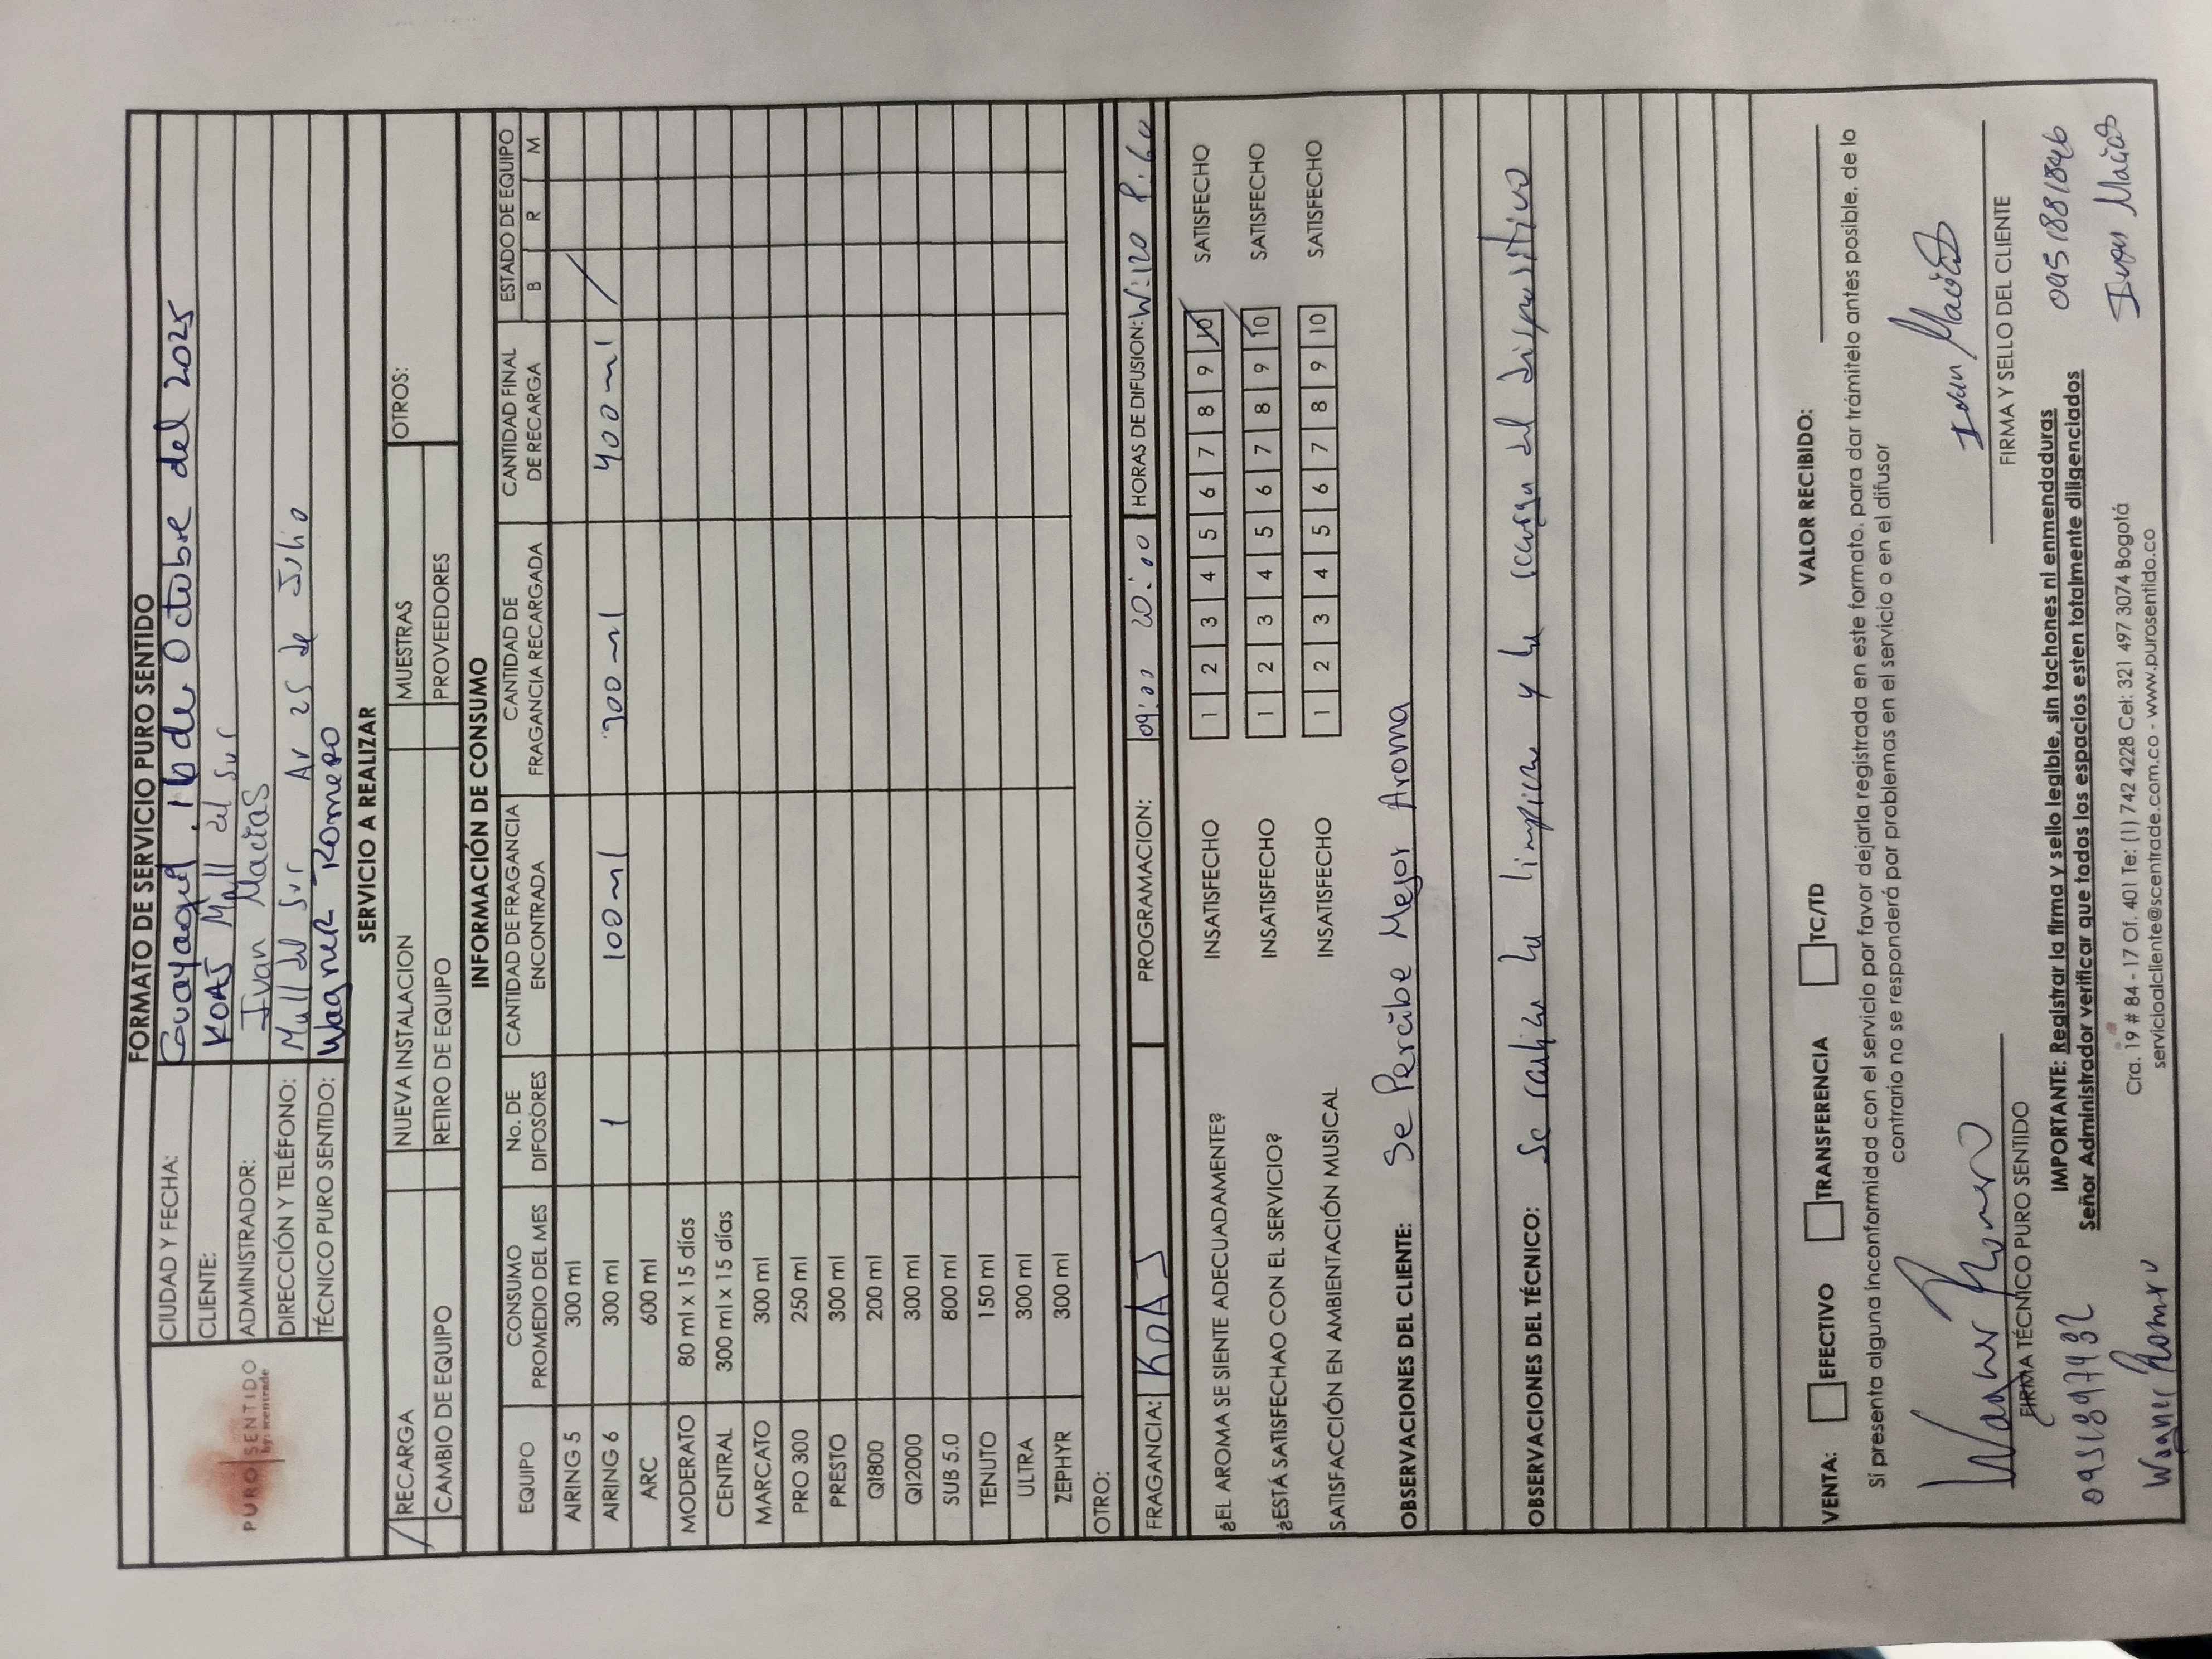 FORMATO DE SERVICIO PURO SENTIDO
PURO SENTIDO
by: scentrade
CIUDAD Y FECHA: Guayaquil, 16 de Octubre del 2025
CLIENTE: KOAJ Mall del Sur
ADMINISTRADOR: Ivan Macias
DIRECCIÓN Y TELÉFONO: Mall del Sur Av 25 de Julio
TÉCNICO PURO SENTIDO: Wagner Romero
SERVICIO A REALIZAR
/ RECARGA NUEVA INSTALACION MUESTRAS OTROS:
CAMBIO DE EQUIPO RETIRO DE EQUIPO PROVEEDORES
INFORMACIÓN DE CONSUMO
EQUIPO CONSUMO PROMEDIO DEL MES No. DE DIFOSORES CANTIDAD DE FRAGANCIA ENCONTRADA CANTIDAD DE FRAGANCIA RECARGADA CANTIDAD FINAL DE RECARGA ESTADO DE EQUIPO
B R M
AIRING 5 300 ml
AIRING 6 300 ml 1 100 ml 300 ml 400 ml /
ARC 600 ml
MODERATO 80 ml x 15 días
CENTRAL 300 ml x 15 días
MARCATO 300 ml
PRO 300 250 ml
PRESTO 300 ml
QI800 200 ml
QI2000 300 ml
SUB 5.0 800 ml
TENUTO 150 ml
ULTRA 300 ml
ZEPHYR 300 ml
OTRO:
FRAGANCIA: KOAJ PROGRAMACION: 09:00 20:00 HORAS DE DIFUSION: W:120 P:60
¿EL AROMA SE SIENTE ADECUADAMENTE? INSATISFECHO 1 2 3 4 5 6 7 8 9 10 SATISFECHO
¿ESTÁ SATISFECHAO CON EL SERVICIO? INSATISFECHO 1 2 3 4 5 6 7 8 9 10 SATISFECHO
SATISFACCIÓN EN AMBIENTACIÓN MUSICAL INSATISFECHO 1 2 3 4 5 6 7 8 9 10 SATISFECHO
OBSERVACIONES DEL CLIENTE: Se Percibe Mejor Aroma
OBSERVACIONES DEL TÉCNICO: Se realiza la limpieza y la recarga del dispositivo
VENTA: EFECTIVO TRANSFERENCIA TC/TD VALOR RECIBIDO:
Sí presenta alguna inconformidad con el servicio por favor dejarla registrada en este formato, para dar trámitelo antes posible, de lo
contrario no se responderá por problemas en el servicio o en el difusor
Wagner Romero Ivan Macias
FIRMA TÉCNICO PURO SENTIDO FIRMA Y SELLO DEL CLIENTE
IMPORTANTE: Registrar la firma y sello legible, sin tachones ni enmendaduras
Señor Administrador verificar que todos los espacios esten totalmente diligenciados
0951881846
Wagner Romero Ivan Macias
Cra. 19 # 84 - 17 Of. 401 Te: (1) 742 4228 Cel: 321 497 3074 Bogotá
servicioalcliente@scentrade.com.co - www.purosentido.co